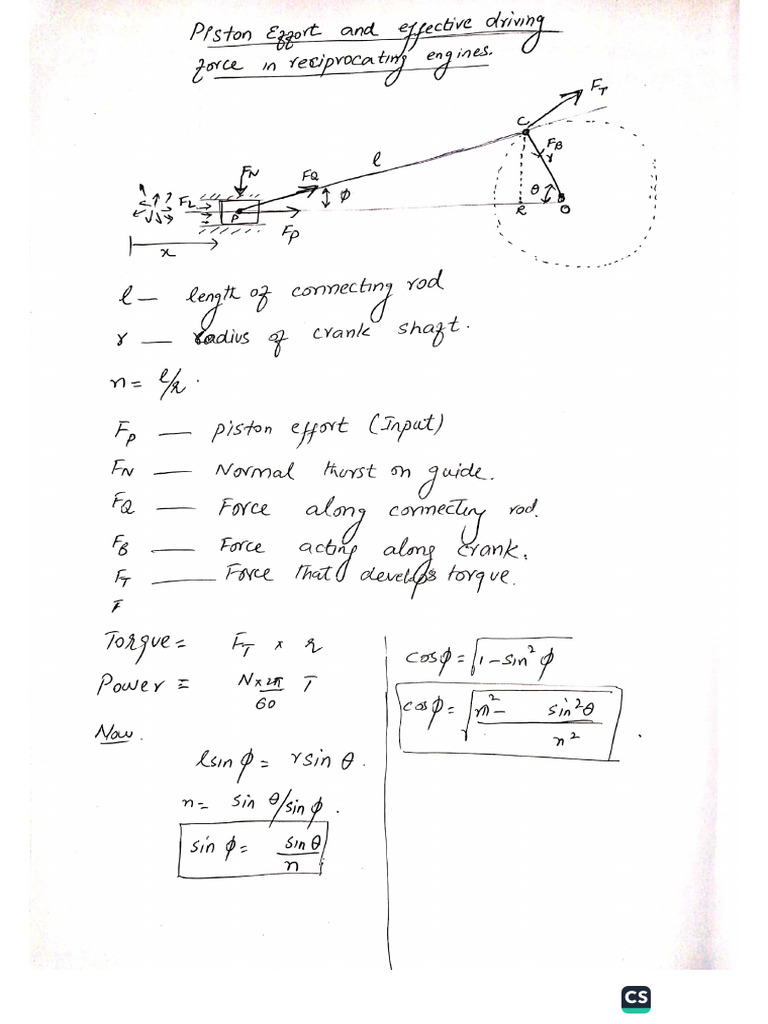 Piston Effort and effective driving
force in reciprocating engines.
F_T
C
F_B
r
l
F_N
F_Q
F_L
θ
ϕ
P
F_P
R
O
x
l — length of connecting rod
r — radius of crank shaft.
n = l/r.
F_P — piston effort (Input)
F_N — Normal thurst on guide.
F_Q — Force along connecting rod.
F_B — Force acting along crank.
F_T — Force that develops torque.
F
Torque = F_T × r
Power = N×2π/60 T
Now.
l sin ϕ = r sin θ.
n = sin θ/sin ϕ.
sin ϕ = sin θ/n
cos ϕ = √(1 - sin² ϕ)
cos ϕ = √(n² - sin² θ)/n².
CS